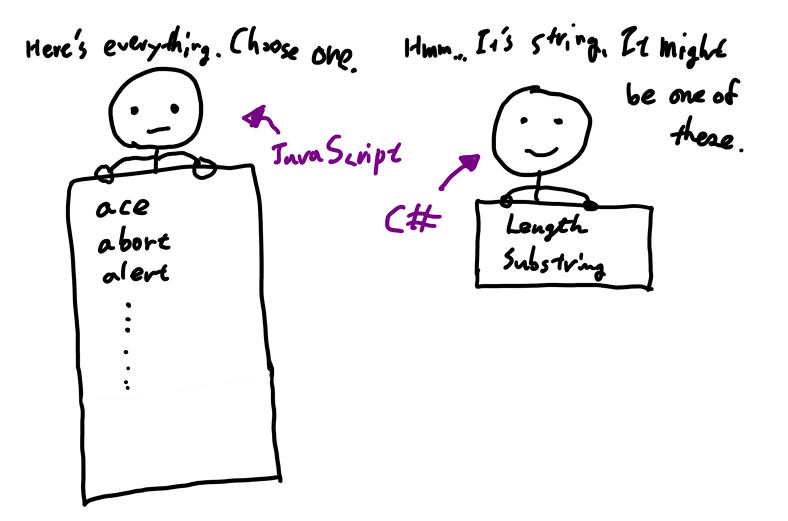 Here's everything. Choose one.
JavaScript
ace
abort
alert
Hmm... It's string. It might
be one of
these.
C#
Length
Substring